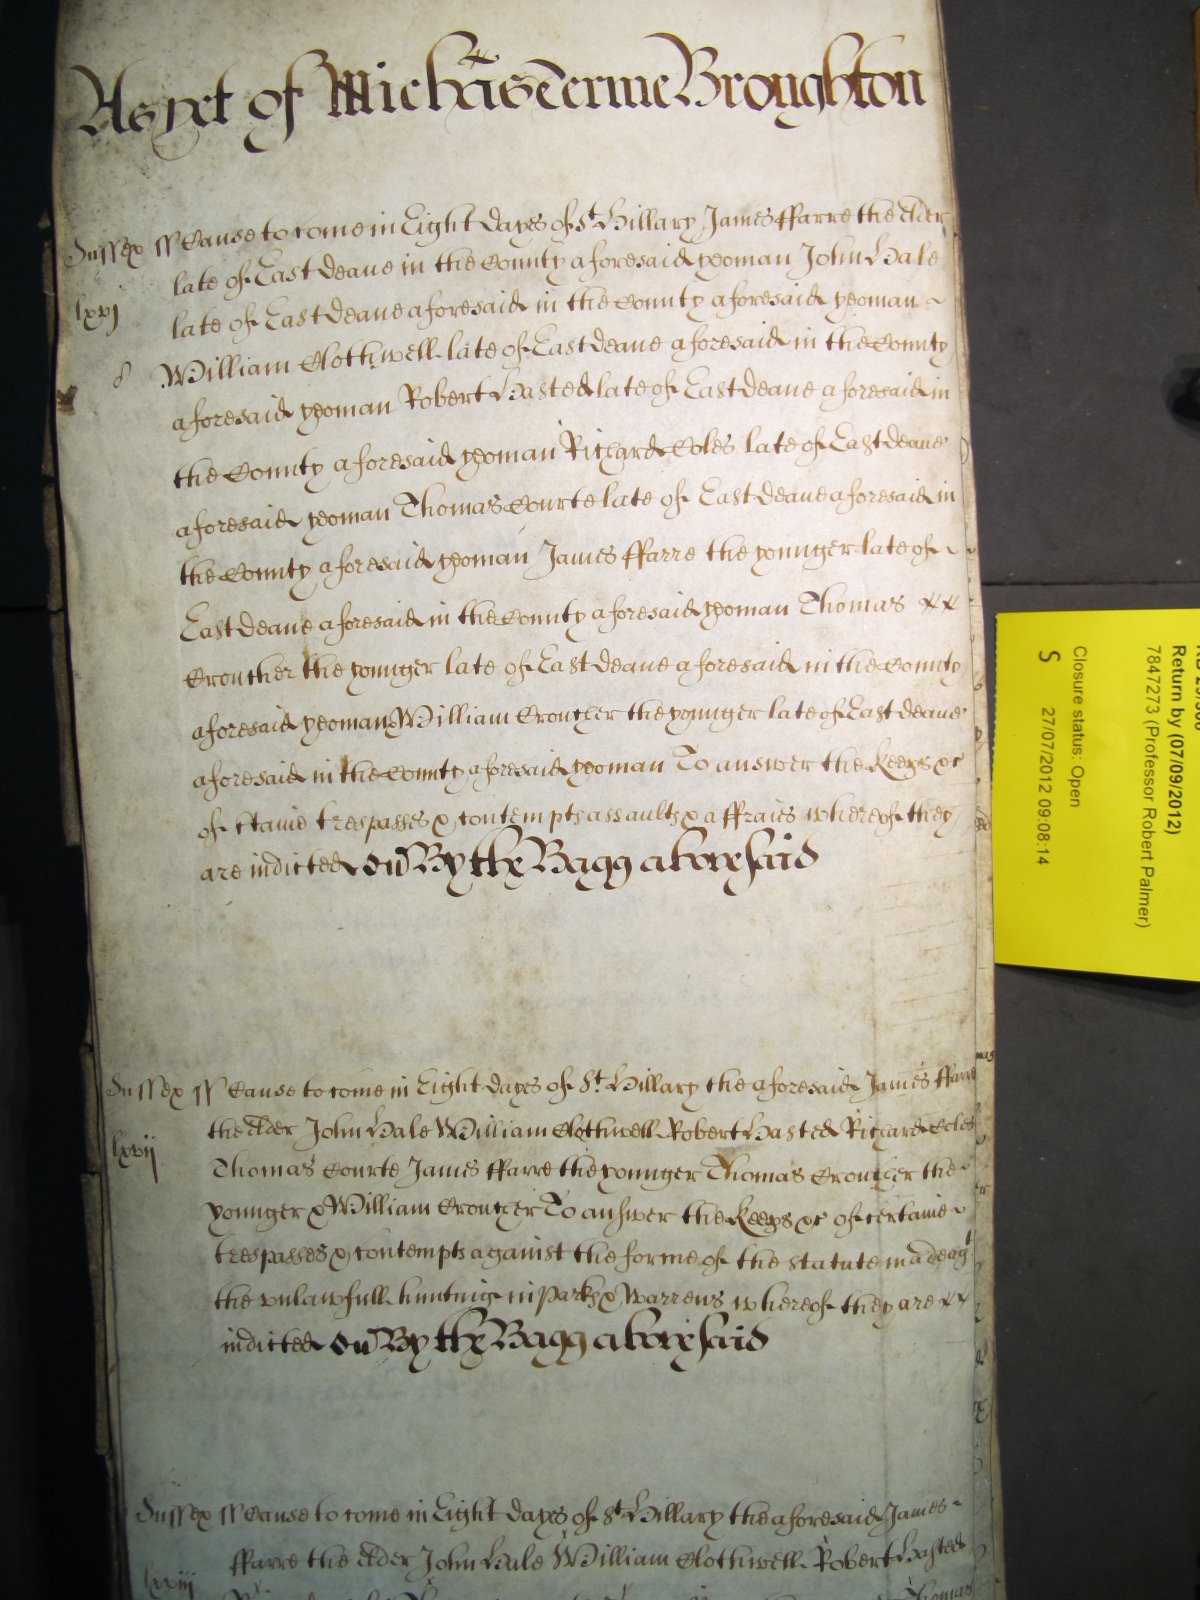 As yet of Michãs Terme Broughton
Sussex ss Cause to come in Eight dayes of St Hillary James ffarre the elder
late of East deane in the County aforesaid yeoman John Hale
lxvj
late of East deane aforesaid in the County aforesaid yeoman
William Clothwell late of East deane aforesaid in the County
aforesaid yeoman Robert Hasted late of East deane aforesaid in
the County aforesaid yeoman Richard Coles late of East deane
aforesaid yeoman Thomas Courte late of East deane aforesaid in
the County aforesaid yeoman James ffarre the younger late of
East deane aforesaid in the County aforesaid yeoman Thomas
Croucher the younger late of East deane aforesaid in the County
aforesaid yeoman & William Croucher the younger late of East deane
aforesaid in the County aforesaid yeoman To answer the Keeps &c
of ctaine trespasses & contempts assaults & affraies whereof they
are indicted By the Bagg abovesaid
Sussex ss Cause to come in Eight dayes of St Hillary the aforesaid James ffarre
the elder John Hale William Clothwell Robert Hasted Richard Coles
lxvij
Thomas Courte James ffarre the younger Thomas Croucher the
younger & William Croucher To answer the Keeps &c of certaine
trespasses & contempts against the forme of the statute made agt
the unlawfull hunting in Parks & Warrens whereof they are
indicted By the Bagg abovesaid
Sussex ss Cause to come in Eight dayes of St Hillary the aforesaid James
ffarre the elder John Hale William Clothwell Robert Hasted
lxviij
Thomas
Return by (07/09/2012)
7847273 (Professor Robert Palmer)
Closure status: Open
S 27/07/2012 09:08:14